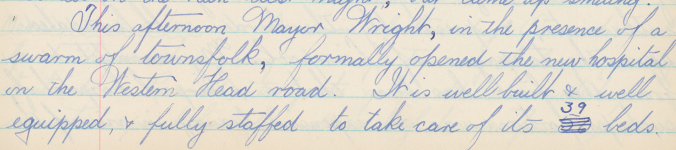 last night, but came up smiling.
This afternoon Mayor Wright, in the presence of a
swarm of townsfolk, formally opened the new hospital
on the Western Head road. It is well built & well
equipped, & fully staffed to take care of its 39 beds.